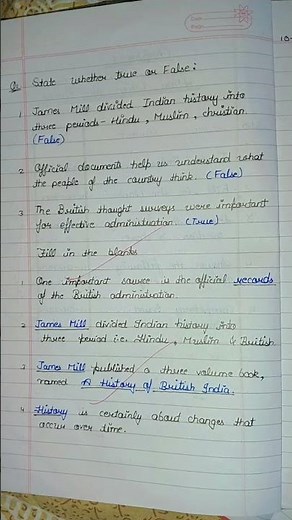 Date
Page
Q. State whether true or False:
1. James Mill divided Indian history into
three periods - Hindu, Muslim, christian.
(False)
2 Official documents help us understand what
the people of the country think. (False)
3 The British thought surveys were important
for effective administration. (True)
Fill in the blanks
1 One important source is the official records
of the British administration.
2 James Mill divided Indian history into
three period i.e. Hindu, Muslim & British.
3 James Mill published a three volume book,
named A History of British India.
4 History is certainly about changes that
occur over time.